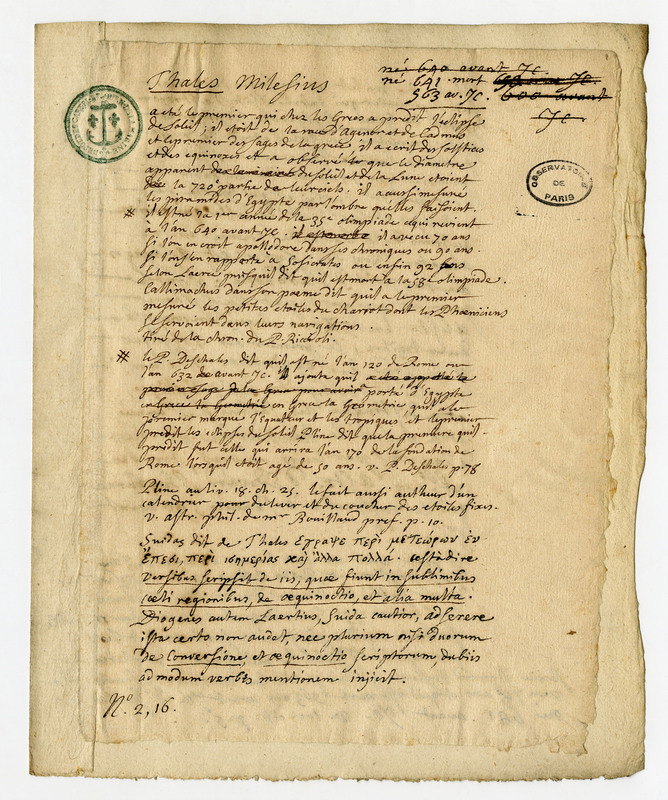 Thales Milesius
né 640 avant JC
né 641. mort
563 av. JC. 600 avant
JC
OBSERVATOIRE
DE
PARIS
a eté le premier qui chez les Grecs a predit l'eclipse
de soleil; il etoit de la race d'Agenor et de Cadmus
et le premier des sages de la grece, il a ecrit des solstices
et des equinoxes et a observé que le diametre
apparent du soleil et de la Lune etoient
la 720 partie de leurs ciels. il a aussi mesuré
les piramides d'Egypte par l'ombre qu'elles faisoient.
# il est né la 1ere année de la 35e olimpiade ce qui revient
à l'an 640 avant JC. il est mort il a vecu 70 ans
si l'on en croit apollodore dans ses chroniques ou 90 ans.
si l'on s'en rapporte à Sosicrates ou enfin 92 ans
selon Laerce puisqu'il dit qu'il est mort a la 58e olimpiade.
Callimachus dans son poeme dit qu'il a le premier
mesuré les petites etoiles du chariot dont les Phoeniciens
se servoient dans leurs navigations.
tiré de la chron. du P. Riccioli.
# le P. Deschales dit qu'il est né l'an 120 de Rome ou
l'an 632 avant JC. Il ajoute qu'il a eté appellé le
premier sage de la Grece pour avoir porté d'Egypte
en Grece la Geometrie en Grece la Geometrie, qu'il a le
premier marqué l'Equateur et les tropiques et le premier
predit les eclipses du soleil Pline dit que la premiere qu'il
predit fut celle qui arriva l'an 170 de la fondation de
Rome lorsqu'il etoit agé de 50 ans. v. P. Deschales p. 78
Pline au liv. 18. ch. 25. le fait aussi autheur d'un
calendrier pour du lever et du coucher des etoiles fixes.
v. astr. phil. de mr Bouillaud pref. p. 10.
Suidas dit de Thales ἔγραψε περὶ μετεώρων ἐν
ἔπεσι, περὶ ισημερίας καὶ ἄλλα πολλά. cest à dire
versibus scripsit de iis, quæ fiunt in sublimibus
cœli regionibus, de æquinoctio, et alia multa.
Diogenes autem Laertius, Suida cautior, adserere
ista certo non audet, nec plurium nisi duorum
de Conversione, et æquinoctio scriptorum, dubiis
admodum verbis mentionem injicit.
No. 2, 16.